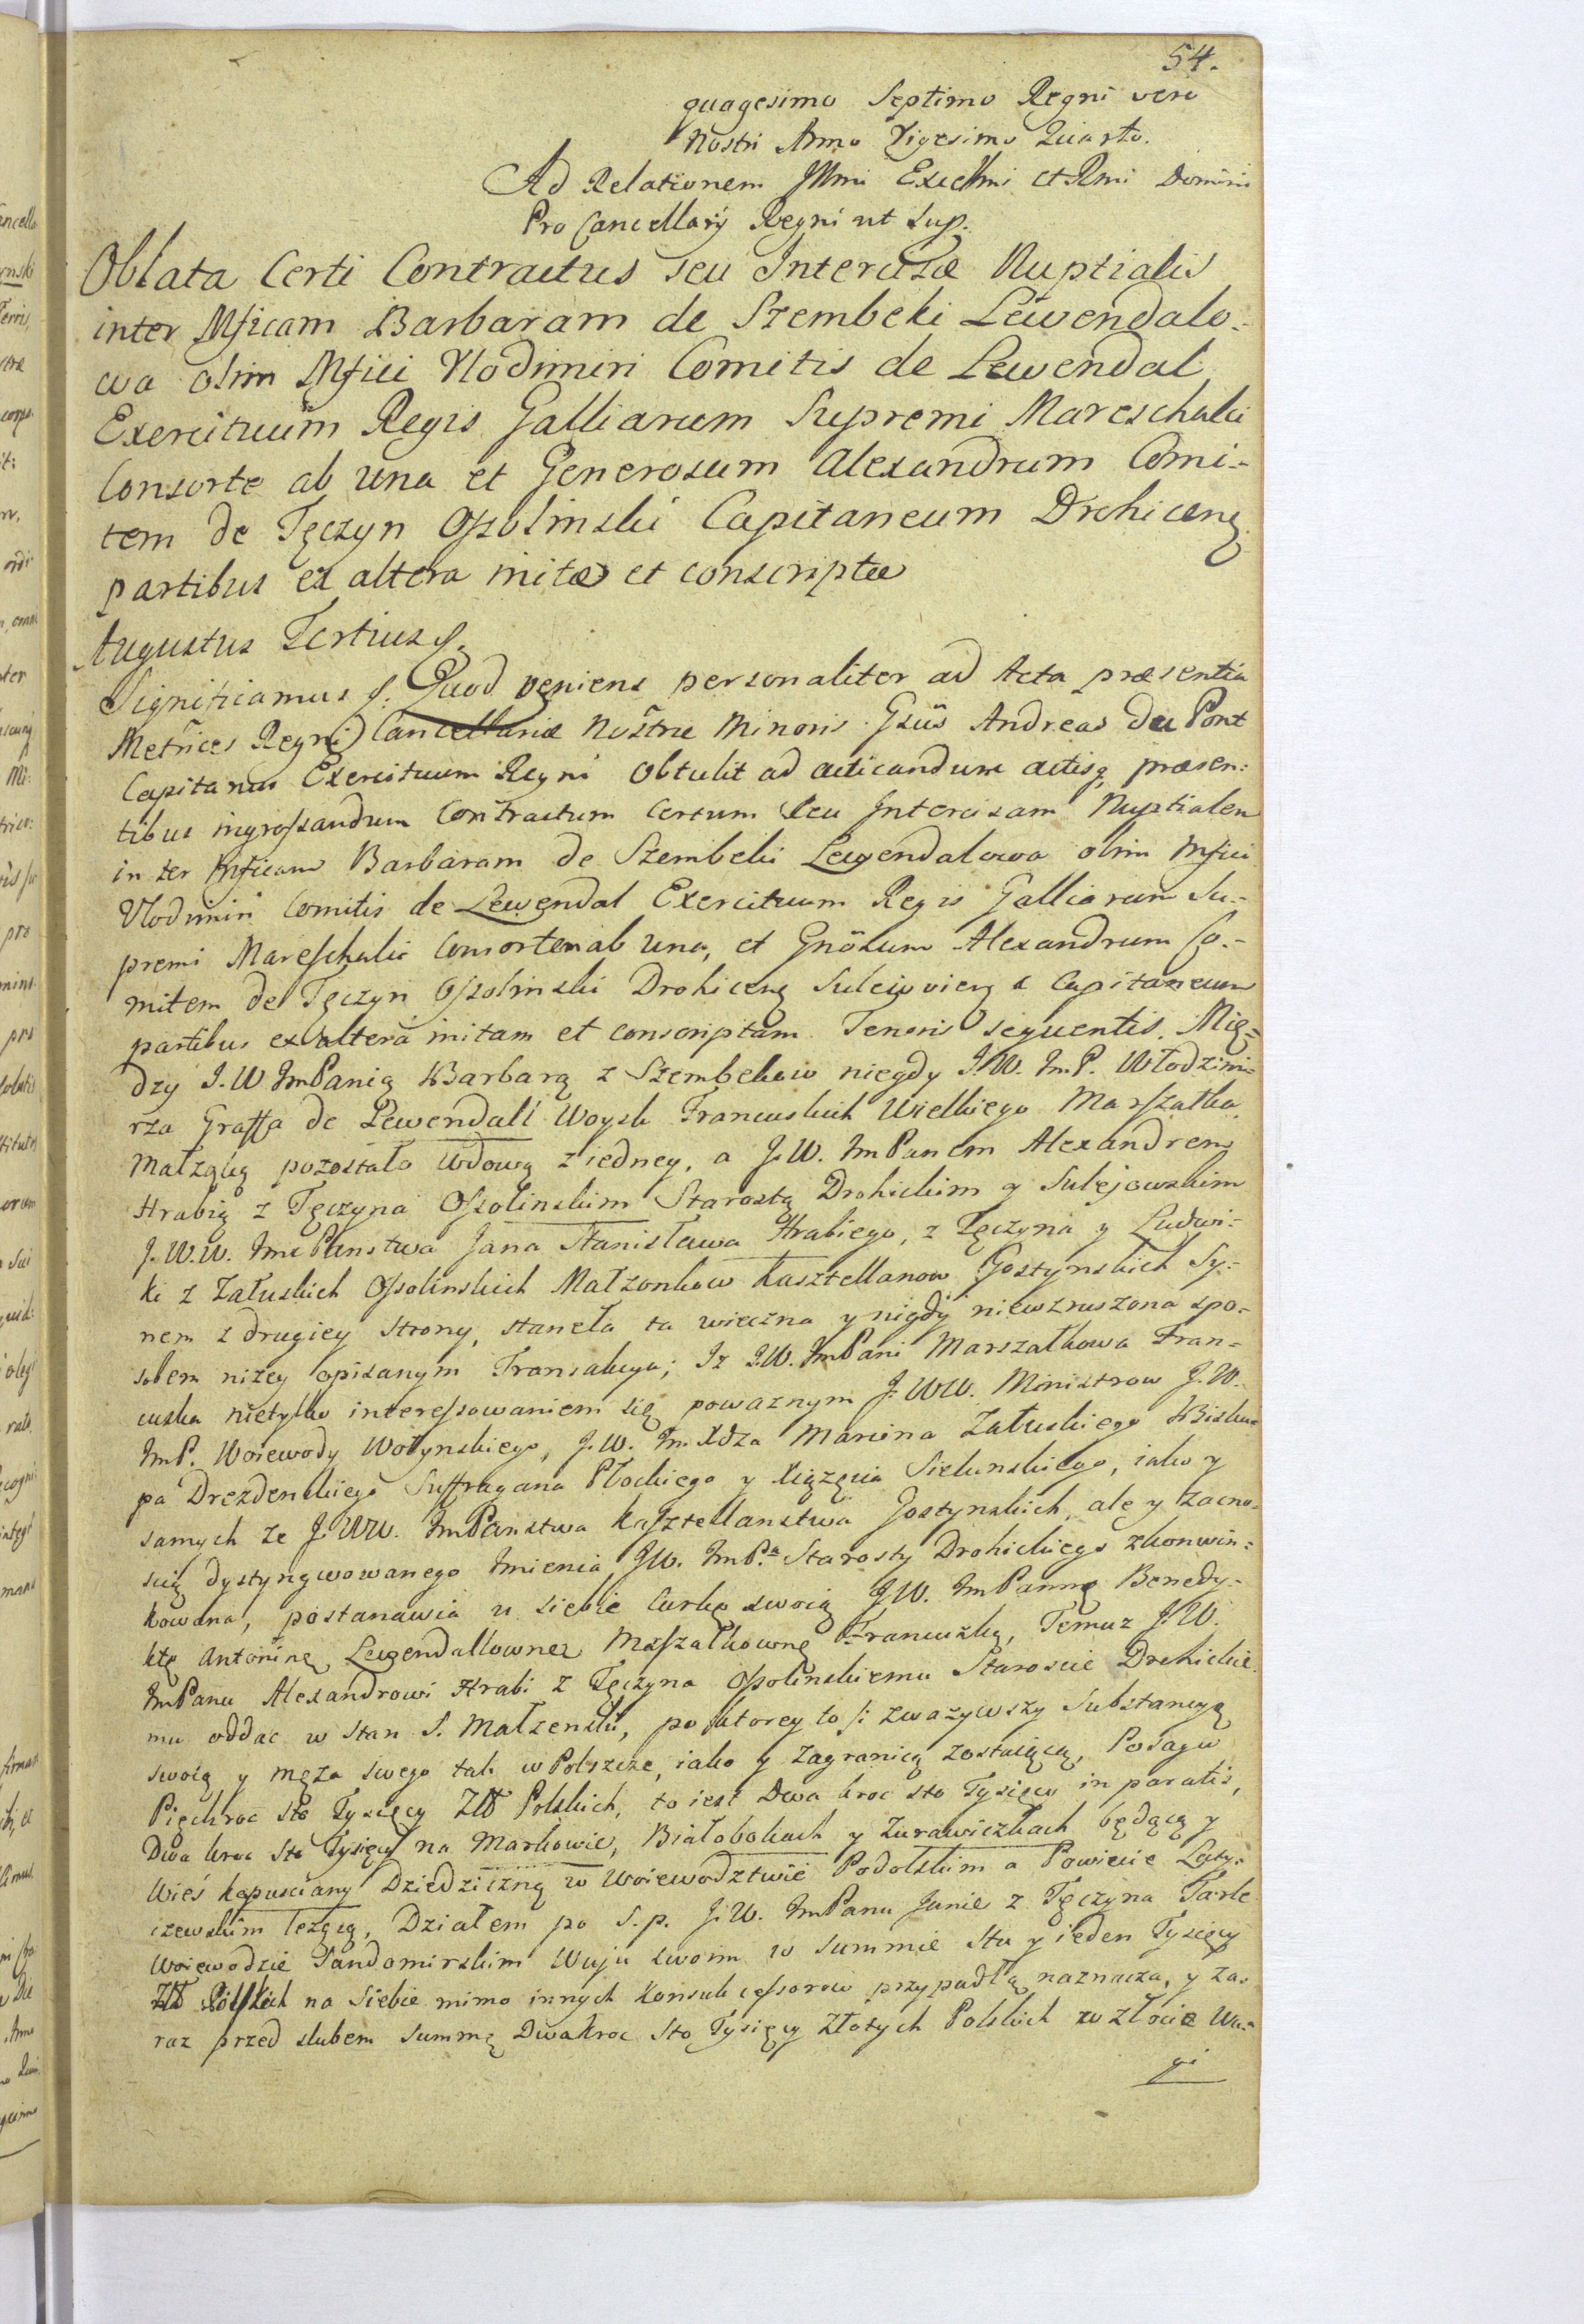 54.
quagesimo Septimo Regni vero
Nostri Anno Vigesimo Quarto.
Ad Relationem Illmi Excellmi et Rmi Domini
Pro Cancellarij Regni ut Sup.
Oblata Certi Contractus seu Intercisæ Nuptialis
inter Mficam Barbaram de Szembeki Lewendalo-
wa olim Mfici Vlodimiri Comitis de Lewendal
Exercituum Regis Galliarum Supremi Mareschalci
Consorte ab una et Generosum Alexandrum Comi-
tem de Tęczyn Ossolinski Capitaneum Drohiceng
partibus ex altera initæ et conscriptæ
Augustus Tertius
Significamus Quod veniens personaliter ad Acta præsentia
Metrices Regni Cancellariæ Nostræ Minoris Gsus Andreas du Pont
Capitanus Exercituum Regni obtulit ad acticandum actisq præsen:
tibus ingrossandum Contractum Certum seu Intercisam Nuptialem
in ter Mficam Barbaram de Szembeki Lewendalowa olim Mfici
Vlodimiri Comitis de Lewendal Exercituum Regis Galliarum Su-
premi Mareschalci Consortem ab una, et Gnosum Alexandrum Co-
mitem de Tęczyn Ossolinski Drohiceng Sulejoviens Capitaneum
partibus ex altera initam et conscriptam Tenoris sequentis. Mię=
dzy J.W. ImPanią Barbarą z Szembekow niegdy J.W. Im.P. Włodzimi-
rza Graffa de Lewendall Woysk Francuskich Wielkiego Marszałka
Małżąką pozostałą Wdową z iedney, a J.W. ImPanem Alexandrem
Hrabią z Tęczyna Ossolinskim Starostą Drohickim y Sulejowskim
J.W.W. ImcPanstwa Jana Stanisława Hrabiego, z Tęczyna y Ludwi-
ki z Załuskich Ossolinskich Małzonkow Kasztellanow Gostynskich Sy-
nem z drugiey strony, staneła ta wieczna y nigdy niewzruszona spo-
sobem niżey opisanym Transakcya; Iz J.W. ImPani Marszałkowa Fran-
cuska nietylko interessowaniem się powaznym J.WW. Ministrow J.W.
ImP. Woiewody Wołynskiego, J.W. Im.Xdza Marcina Załuskiego Bisku-
pa Drezdenskiego Suffragana Płockiego y Xiążęcia Sielunskiego, iako y
samych ze J.WW. ImPanstwa Kasztellanstwa Gostynskich, ale y zacno-
scią dystyngwowanego Imienia JW. ImPa Starosty Drohickiego zkonwin-
kowana, postanawia u siebie Curkę swoią J.W. ImPannę Benedy-
ktę Antoninę Lewendallownę Mrszałkownę Francuzką, Temuz J.W.
ImPanu Alexandrowi Hrabi z Tęczyna Ossolinskiemu Staroscie Drohickie-
mu oddac w Stan S. Małzenski, po ktorey to zważywszy Substancyą
swoią y męża swego tak w Polszcze, iako y zagranicą zostaiącą, Posagu
Pięckroc Sto Tysięcy Złł Polskich, to iest Dwa kroc sto Tysięcy in paratis,
Dwa kroc Sto Tysięcy na Markowie, Białobokach y Zurawiczkach będącą y
Wieś Kapusciany Dziedziczną w Woiewodztwie Podolskim a Powiecie Laty-
czewskim leżącą, Działem po S.p. J.W. ImPanu Janie z Tęczyna Tarle
Woiewodzie Sandomirskim Wuju swoim w summie Stu y ieden Tysięcy
Złł Polskich na Siebie mimo innych Konsukcessorow przypadłą naznacza, y za-
raz przed slubem Summę Dwakroc Sto Tysięcy Złotych Polskich w złocie Wa-
gi